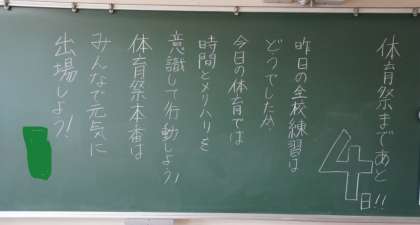 体育祭まであと!!
4日!
昨日の全校練習は
どうでしたか
今日の体育では
時間とメリハリを
意識して行動しよう!
体育祭本番は
みんなで元気に
出場しよう!